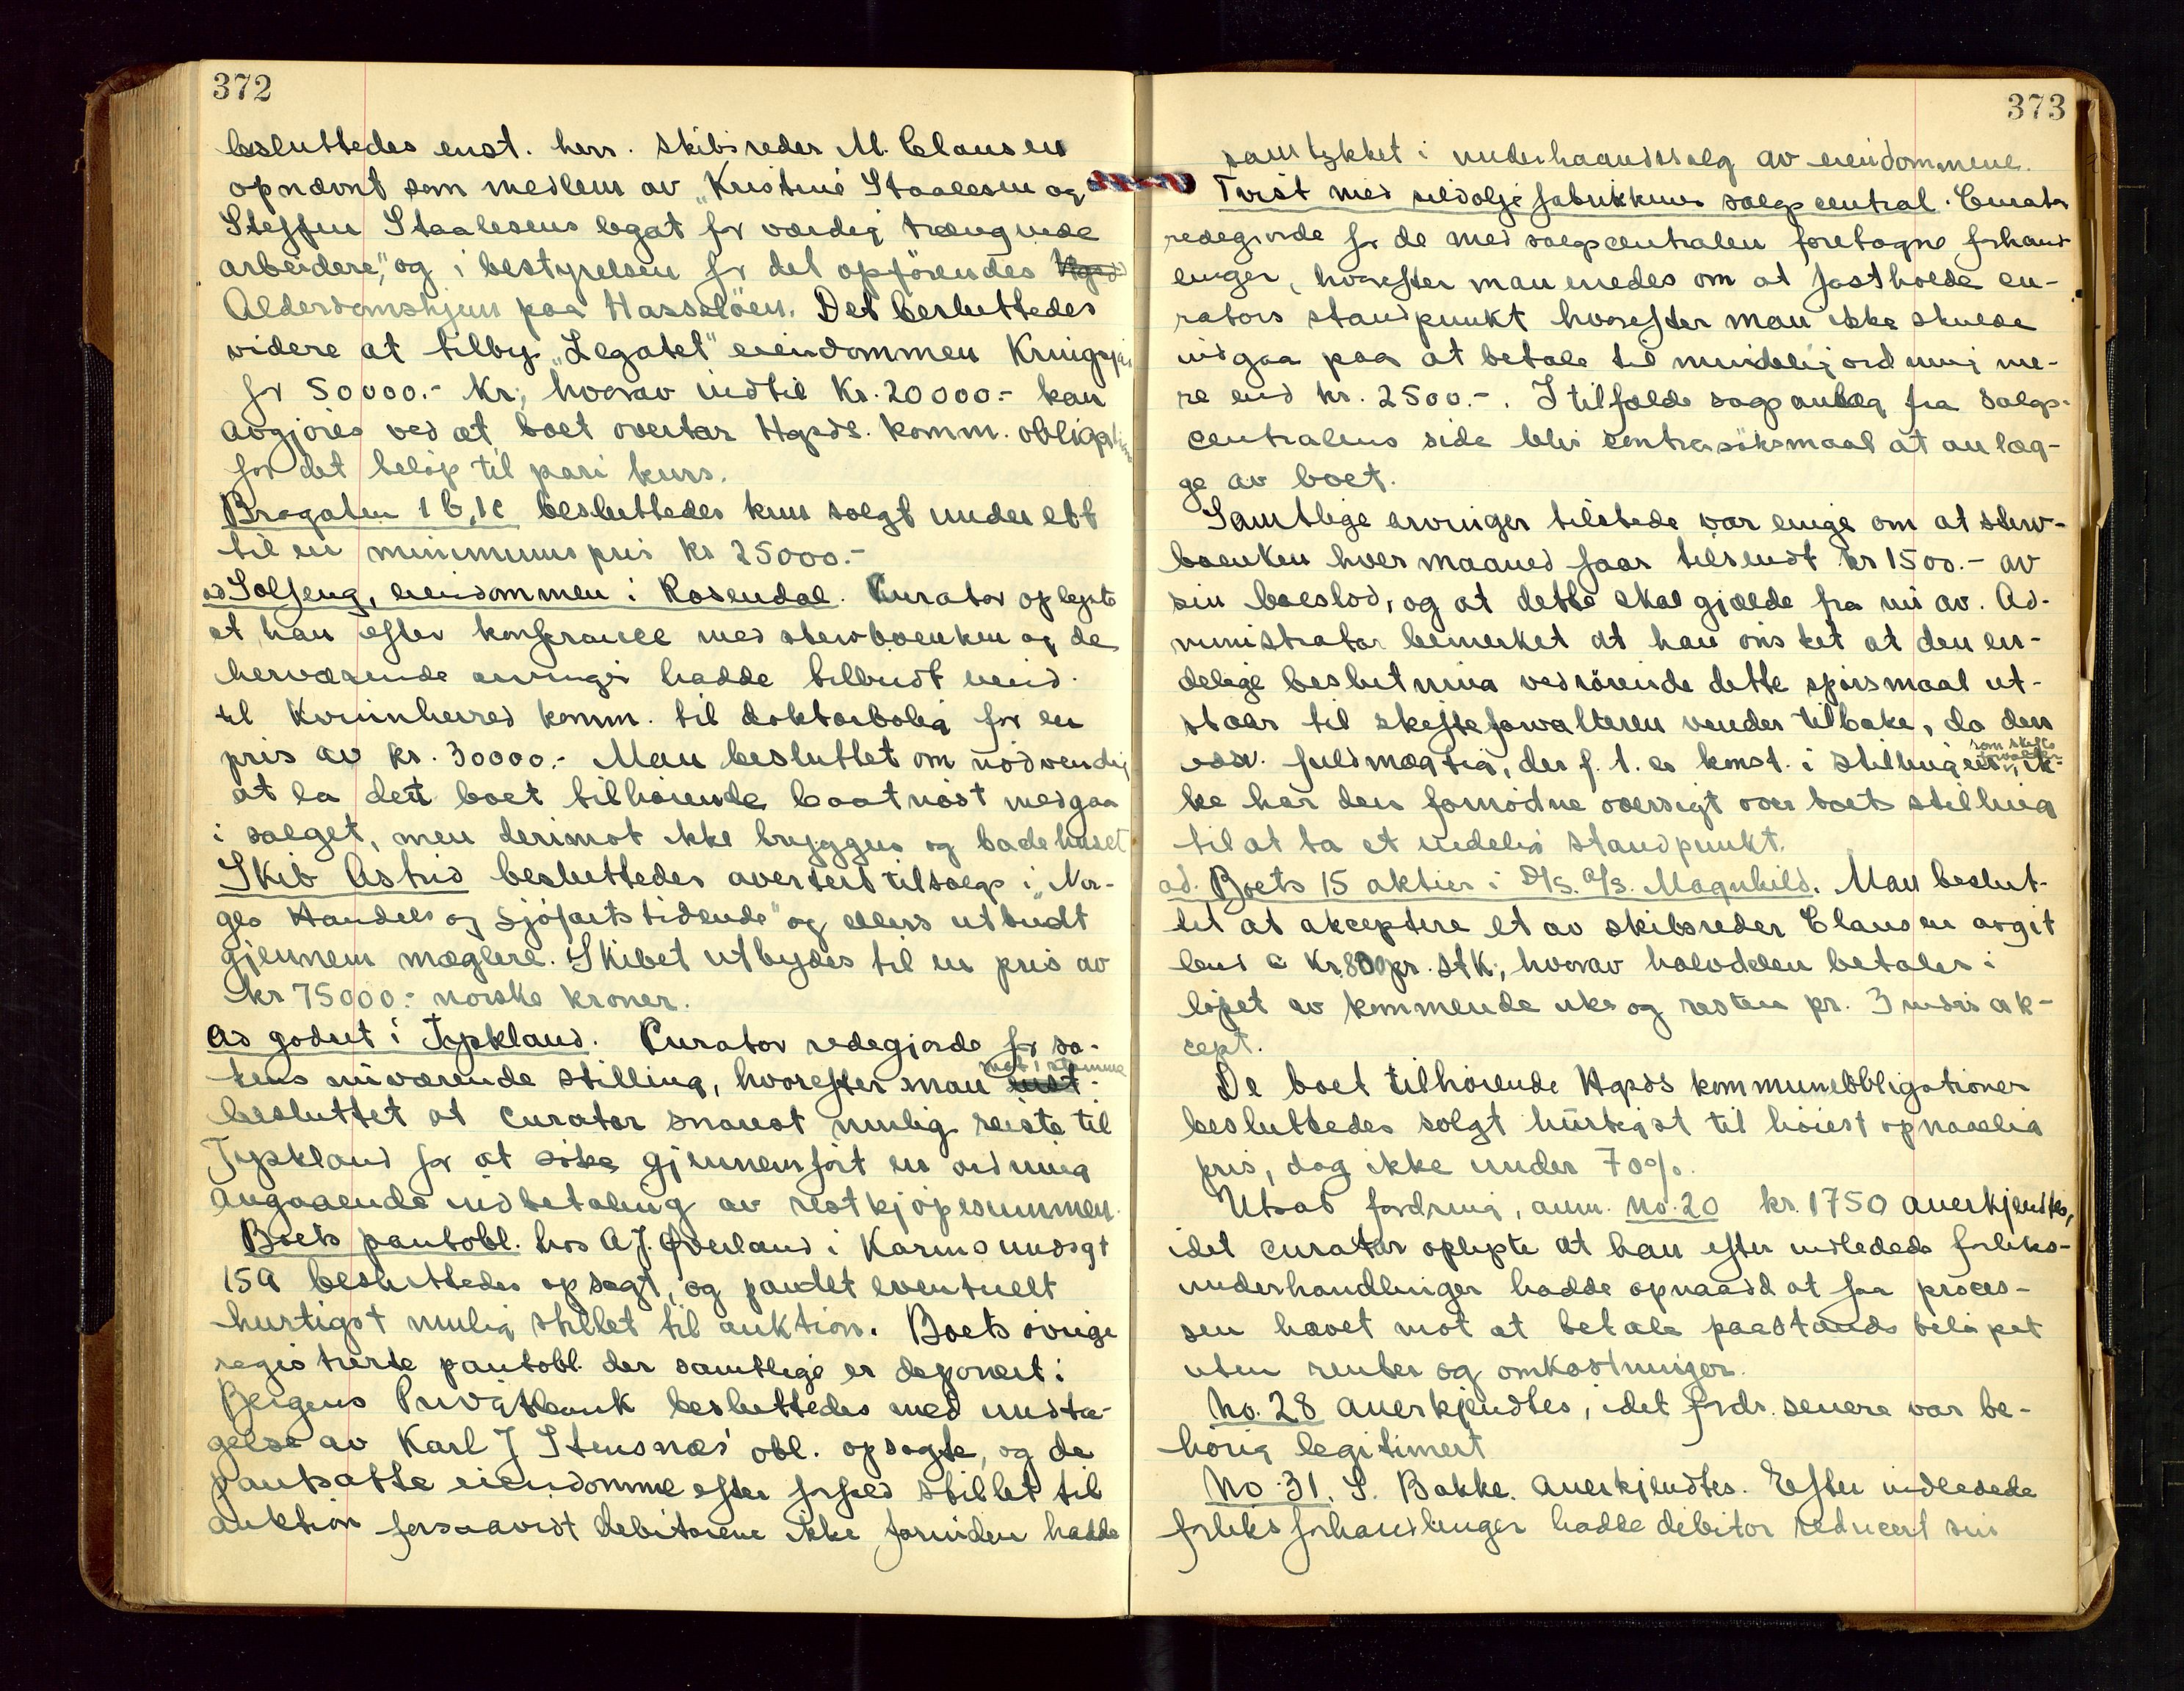 372
besluttedes enst. herr. skibsreder M. Clausen
opnævnt som medlem av "Kristine Staalesen og
Steffen Staalesens legat for værdig trængende
arbeidere," og i bestyrelsen for det opførendes Hgsds
Alderdomshjem paa Hasseløen. Det besluttedes
videre at tilby "Legatet" eiendommen Kringsjaa
for 50000.- Kr; hvorav indtil Kr. 20000.- kan
avgjöres ved at boet overtar Hgsds. komm. obligationer
for det belöp til pari kurs.
Brogaten 1b, 1c besluttedes kun solgt under ett
til en minimumspris kr 25000.-
ad Solfeng, eiendommen i Rosendal. Kurator oplyste
at han efter konferance med stervboenken og de
herværende arvinger hadde tilbudt eiend.
til Kvinnherred komm. til doktorbolig for en
pris av kr. 30000.- Man besluttet om nödvendig
at la dett boet tilhörende baatnöst medgaa
i salget, men derimot ikke bryggen og badehuset
Skib Astrid besluttedes avertert tilsalgs i "Nor-
ges Handels og Sjöfarts tidende" og ellers utbudt
gjennem mæglere. Skibet utbydes til en pris av
kr 75000.- norske kroner.
Ad godset i Tyskland. Curator redegjorde for sa-
kens nuværende stilling, hvorefter man
mot 1 stemme
besluttet at curator snarest mulig reiste til
Tyskland for at söke gjennemfört en ordning
angaaende indbetaling av restkjöpesummen.
Boets pantobl. hos A.J. Øverland i Karmsundsgt
159 besluttedes opsagt, og pantet eventuelt
hurtigst mulig stillet til auktion. Boets övrige
registrerte pantobl. der samtlige er deponert i
Bergens Privatbank besluttedes med undta-
gelse av Karl J Stensnæs' obl. opsagte, og de
pantsatte eiendomme efter forfald stillet til
auktion forsaavidt debitorene ikke forinden hadde
373
samtykket i underhaandssalg av eiendommene.
Tvist med sildoljefabrikkenes salgscentral. Curator
redegjorde for de med salgscentralen foretagne forhand-
linger, hvorefter man enedes om at fastholde cu-
rators standpunkt hvorefter man ikke skulde
indgaa paa at betale til mindelig ordning me-
re end kr. 2500.-. I tilfælde saganlæg fra salgs-
centralens side blir contrasöksmaal at anlæg-
ge av boet.
Samtlige arvinger tilstede var enige om at sterv-
boenken hver maaned faar tilsendt kr 1500.- av
sin boeslod, og at dette skal gjælde fra nu av. Ad-
ministrator bemerket at han önsket at den en-
delige beslutning vedrörende dette spörsmaal ut-
staar til skifteforvalteren vender tilbake, da den
edsv. fuldmægtig, der f. t. er konst. i stillingen, ik-
som skifte forvalter
ke har den fornödne oversigt over boets stilling
til at ta et endelig standpunkt.
ad. Boets 15 aktier i D/S. A/S. Magnhild. Man beslut-
tet at akceptere et av skibsreder Clausen avgit
bud a Kr. 800 pr. stk; hvorav halvdelen betales i
löpet av kommende uke og resten pr. 3 mdrs ak-
cept.
De boet tilhörende Hgsds kommuneobligationer
besluttedes solgt hurtigst til höiest opnaaelig
pris, dog ikke under 70%.
Utsat fordring, anm. no. 20 kr. 1750 anerkjendtes,
idet curator oplyste at han efter indledede forliks-
underhandlinger hadde opnaadd at faa proces-
sen hævet mot at betale paastands belöpet
uten renter og omkostninger.
No. 28 anerkjendtes, idet fordr. senere var be-
hörig legitimert
No. 31. S. Bakke. anerkjendtes. Efter indledede
forliksforhandlinger hadde debitor reducert sin